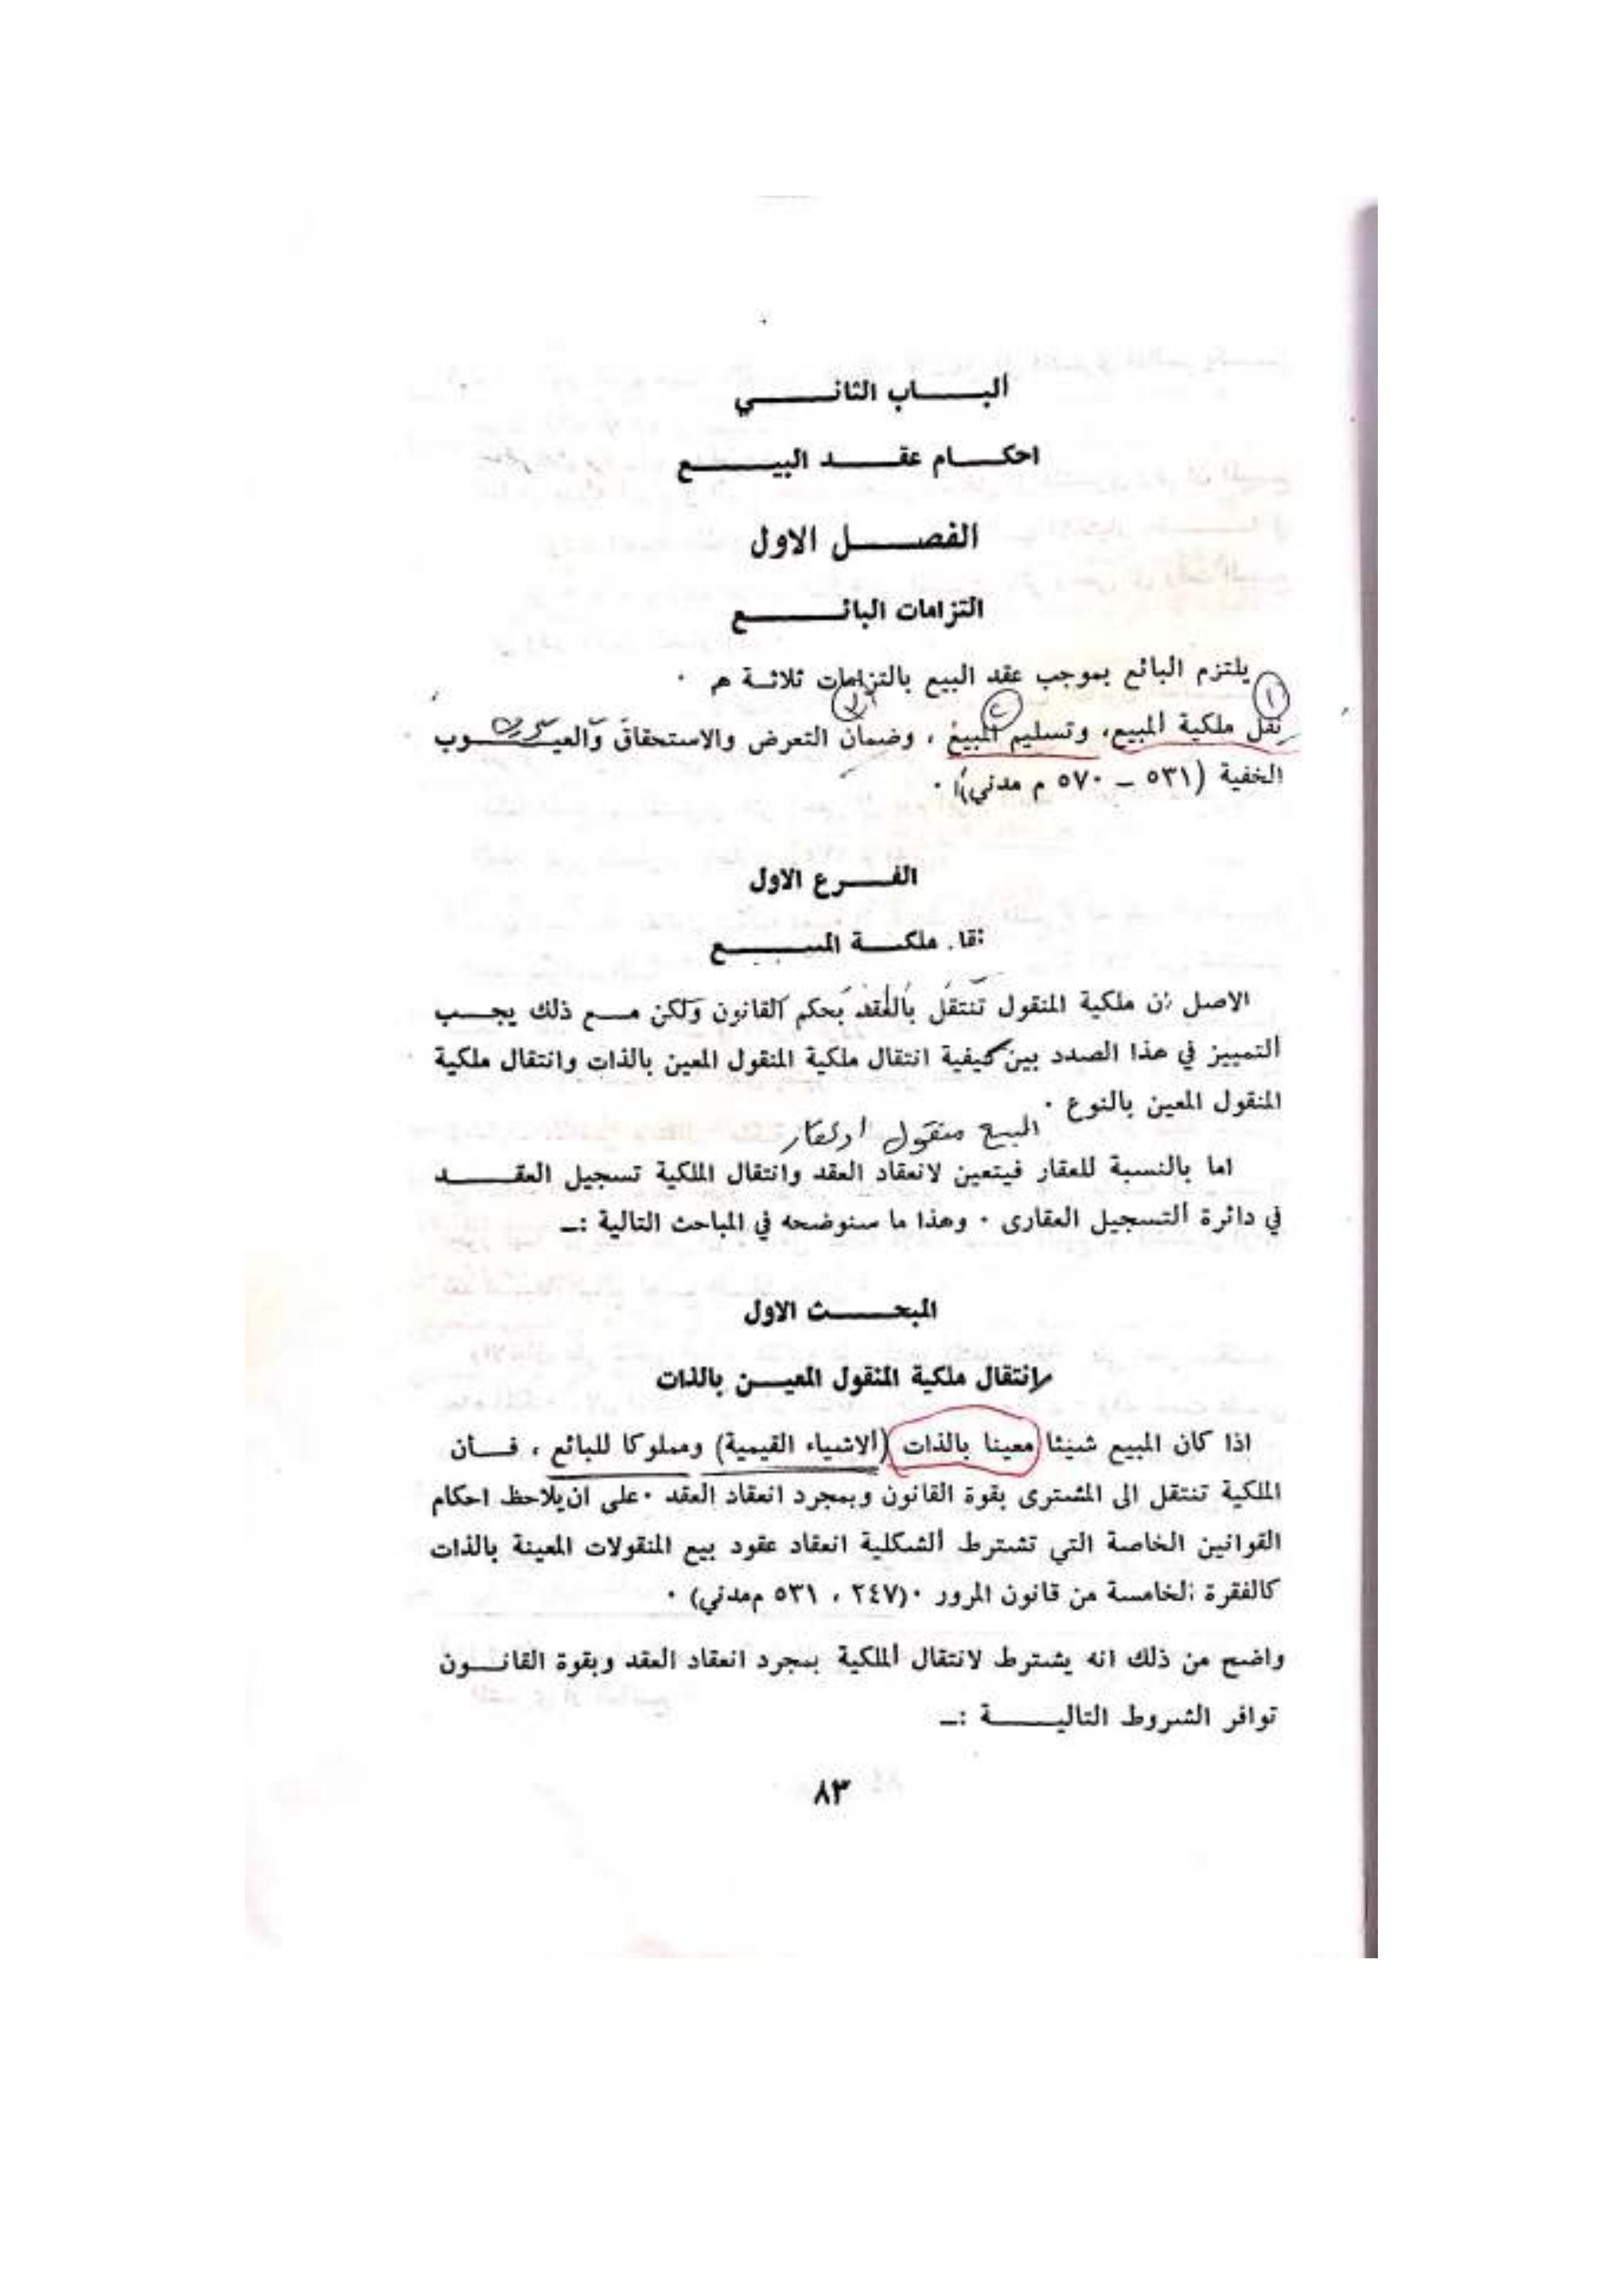 الباب الثاني
احكام عقد البيع
الفصل الاول
التزامات البائع
يلتزم البائع بموجب عقد البيع بالتزامات ثلاثة هم ٠
نقل ملكية المبيع، وتسليم المبيع ، وضمان التعرض والاستحقاق والعيوب
الخفية (٥٣١ – ٥٧٠ م مدني) ٠
الفرع الاول
نقل ملكية المبيع
الاصل ان ملكية المنقول تنتقل بالعقد بحكم القانون ولكن مع ذلك يجب
التمييز في هذا الصدد بين كيفية انتقال ملكية المنقول المعين بالذات وانتقال ملكية
المنقول المعين بالنوع ٠
المبيع منقول او عقار
اما بالنسبة للعقار فيتعين لانعقاد العقد وانتقال الملكية تسجيل العقد
في دائرة التسجيل العقارى ٠ وهذا ما سنوضحه في المباحث التالية :ـ
المبحث الاول
انتقال ملكية المنقول المعين بالذات
اذا كان المبيع شيئا معينا بالذات (الاشياء القيمية) ومملوكا للبائع ، فأن
الملكية تنتقل الى المشترى بقوة القانون وبمجرد انعقاد العقد ٠على ان يلاحظ احكام
القوانين الخاصة التي تشترط ألشكلية انعقاد عقود بيع المنقولات المعينة بالذات
كالفقرة الخامسة من قانون المرور ٠(٢٤٧ ، ٥٣١ م مدني) ٠
واضح من ذلك انه يشترط لانتقال ألملكية بمجرد انعقاد العقد وبقوة القانون
توافر الشروط التالية :ـ
٨٣